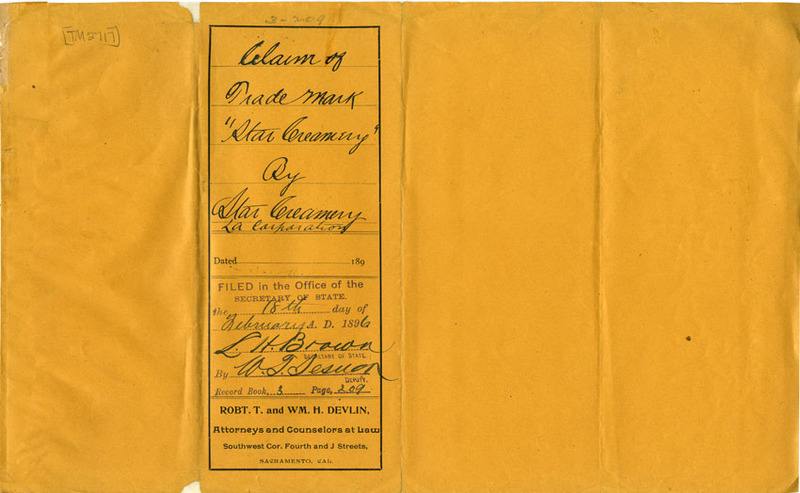 3-209
[TM2717]
Claim of
Trade Mark
"Star Creamery"
By
Star Creamery
[a Corporation]
Dated 189
FILED in the Office of the
SECRETARY OF STATE.
the 18th day of
February A. D. 1896
L. H. Brown
SECRETARY OF STATE.
By W. T.
DEPUTY.
Record Book, 3 Page, 209
ROBT. T. and WM. H. DEVLIN,
Attorneys and Counselors at Law
Southwest Cor. Fourth and J Streets,
SACRAMENTO, CAL.